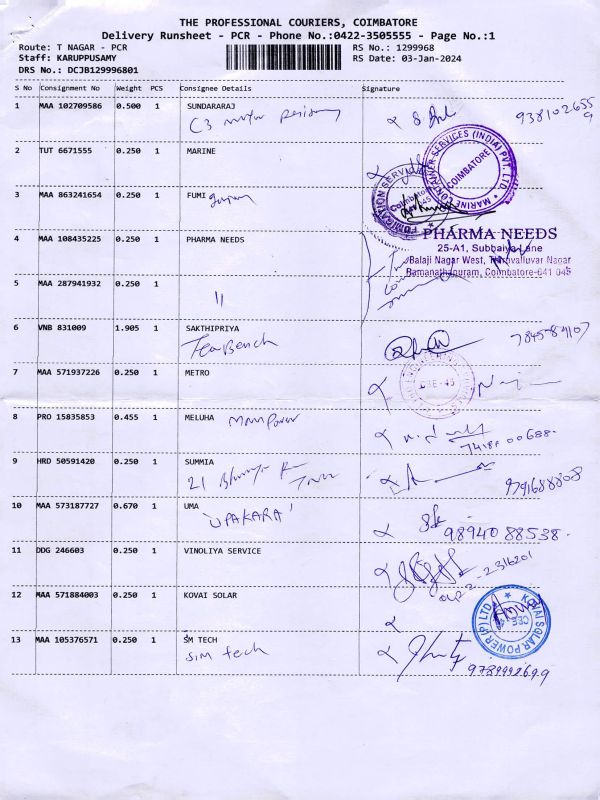 THE PROFESSIONAL COURIERS, COIMBATORE
Delivery Runsheet - PCR - Phone No.:0422-3505555 - Page No.:1
Route: T NAGAR - PCR RS No.: 1299968
Staff: KARUPPUSAMY RS Date: 03-Jan-2024
DRS No.: DCJB129996801
S No Consignment No Weight PCS Consignee Details Signature
1 MAA 102709586 0.500 1 SUNDARARAJ
C3
2 TUT 6671555 0.250 1 MARINE
MARINE CONTAINER SERVICES (INDIA) PVT. LTD.
COIMBATORE
3 MAA 863241654 0.250 1 FUMI
FUMIGATION
4 MAA 108435225 0.250 1 PHARMA NEEDS
PHARMA NEEDS
25-A1, Subbaiya Lane
Balaji Nagar West, Thiruvalluvar Nagar
Ramanathapuram, Coimbatore-641 045
5 MAA 287941932 0.250 1
"
6 VNB 831009 1.905 1 SAKTHIPRIYA
Tea Bench
7 MAA 571937226 0.250 1 METRO
8 PRO 15835853 0.455 1 MELUHA Manpower
7418900688.
9 HRD 50591420 0.250 1 SUMMIA
21
10 MAA 573187727 0.670 1 UMA
'UPAKARA' 9894088538.
11 DDG 246603 0.250 1 VINOLIYA SERVICE
2316201
12 MAA 571884003 0.250 1 KOVAI SOLAR
KOVAI SOLAR POWER (P) LTD
13 MAA 105376571 0.250 1 SM TECH
sim tech 9789992699